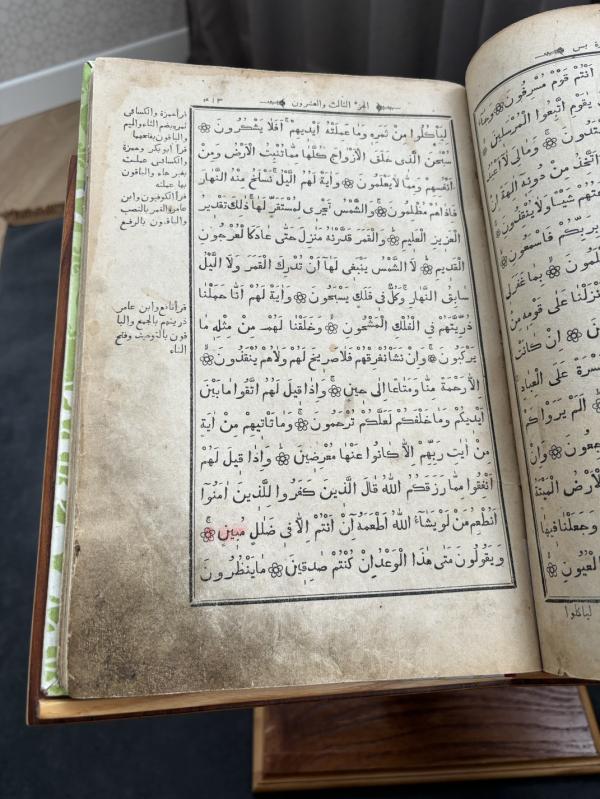 يس
اَنْتُمْ قَوْمٌ مُسْرِفُونَ وَجَاءَ
يٰقَوْمِ اتَّبِعُوا الْمُرْسَلِينَ
وَمَالِيَ لَا اَعْبُدُ
مِنْ دُونِهٖ اٰلِهَةً اِنْ
شَيْئًا وَلَا يُنْقِذُونِ
بِرَبِّكُمْ فَاسْمَعُونِ
بِمَا غَفَرَ لِي
عَلٰى قَوْمِهٖ مِنْ
اِنْ كَانَتْ
عَلَى الْعِبَادِ
اَلَمْ يَرَوْا كَمْ
وَاِنْ
الْمَيْتَةُ
وَجَعَلْنَا فِيهَا
الْعُيُونِ
لياكلوا
الجزء الثالث والعشرون ٤١٣
لِيَأْكُلُوا مِنْ ثَمَرِهٖ وَمَا عَمِلَتْهُ اَيْدِيهِمْ اَفَلَا يَشْكُرُونَ
سُبْحٰنَ الَّذِى خَلَقَ الْاَزْوَاجَ كُلَّهَا مِمَّا تُنْبِتُ الْاَرْضُ وَمِنْ
اَنْفُسِهِمْ وَمِمَّا لَا يَعْلَمُونَ وَاٰيَةٌ لَهُمُ الَّيْلُ نَسْلَخُ مِنْهُ النَّهَارَ
فَاِذَاهُمْ مُظْلِمُونَ وَالشَّمْسُ تَجْرِى لِمُسْتَقَرٍّ لَهَا ذٰلِكَ تَقْدِيرُ
الْعَزِيزِ الْعَلِيمِ وَالْقَمَرَ قَدَّرْنٰهُ مَنَازِلَ حَتّٰى عَادَ كَالْعُرْجُونِ
الْقَدِيمِ لَا الشَّمْسُ يَنْبَغِى لَهَا اَنْ تُدْرِكَ الْقَمَرَ وَلَا الَّيْلُ
سَابِقُ النَّهَارِ وَكُلٌّ فِى فَلَكٍ يَسْبَحُونَ وَاٰيَةٌ لَهُمْ اَنَّا حَمَلْنَا
ذُرِّيَّتَهُمْ فِى الْفُلْكِ الْمَشْحُونِ وَخَلَقْنَا لَهُمْ مِنْ مِثْلِهٖ مَا
يَرْكَبُونَ وَاِنْ نَشَأْ نُغْرِقْهُمْ فَلَا صَرِيخَ لَهُمْ وَلَا هُمْ يُنْقَذُونَ
اِلَّا رَحْمَةً مِنَّا وَمَتَاعًا اِلٰى حِينٍ وَاِذَا قِيلَ لَهُمُ اتَّقُوا مَا بَيْنَ
اَيْدِيكُمْ وَمَا خَلْفَكُمْ لَعَلَّكُمْ تُرْحَمُونَ وَمَا تَأْتِيهِمْ مِنْ اٰيَةٍ
مِنْ اٰيٰتِ رَبِّهِمْ اِلَّا كَانُوا عَنْهَا مُعْرِضِينَ وَاِذَا قِيلَ لَهُمْ
اَنْفِقُوا مِمَّا رَزَقَكُمُ اللّٰهُ قَالَ الَّذِينَ كَفَرُوا لِلَّذِينَ اٰمَنُوا
اَنُطْعِمُ مَنْ لَوْ يَشَاءُ اللّٰهُ اَطْعَمَهُ اِنْ اَنْتُمْ اِلَّا فِى ضَلٰلٍ مُبِينٍ
وَيَقُولُونَ مَتٰى هٰذَا الْوَعْدُ اِنْ كُنْتُمْ صٰدِقِينَ مَا يَنْظُرُونَ
قرأ حمزة والكسائى
ثمره بضم الثاء والميم
والباقون بفتحهما
قرأ ابو بكر وحمزة
والكسائى عملت
بغير هاء والباقون
بها عملته
قرأ الكوفيون وابن
عامر القمر بالنصب
والباقون بالرفع
قرأ نافع وابن عامر
ذريتهم بالجمع والبا
قون بالتوحيد وفتح
التاء